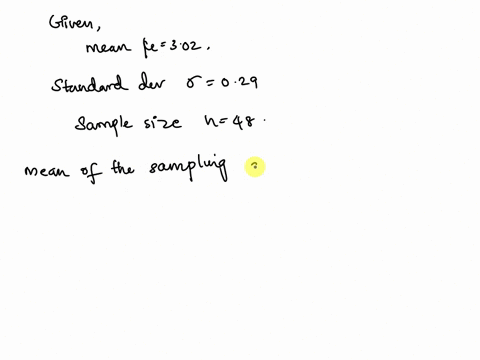 Given,
mean μ = 3.02.
Standard dev σ = 0.29
Sample size n = 48.
mean of the sampling